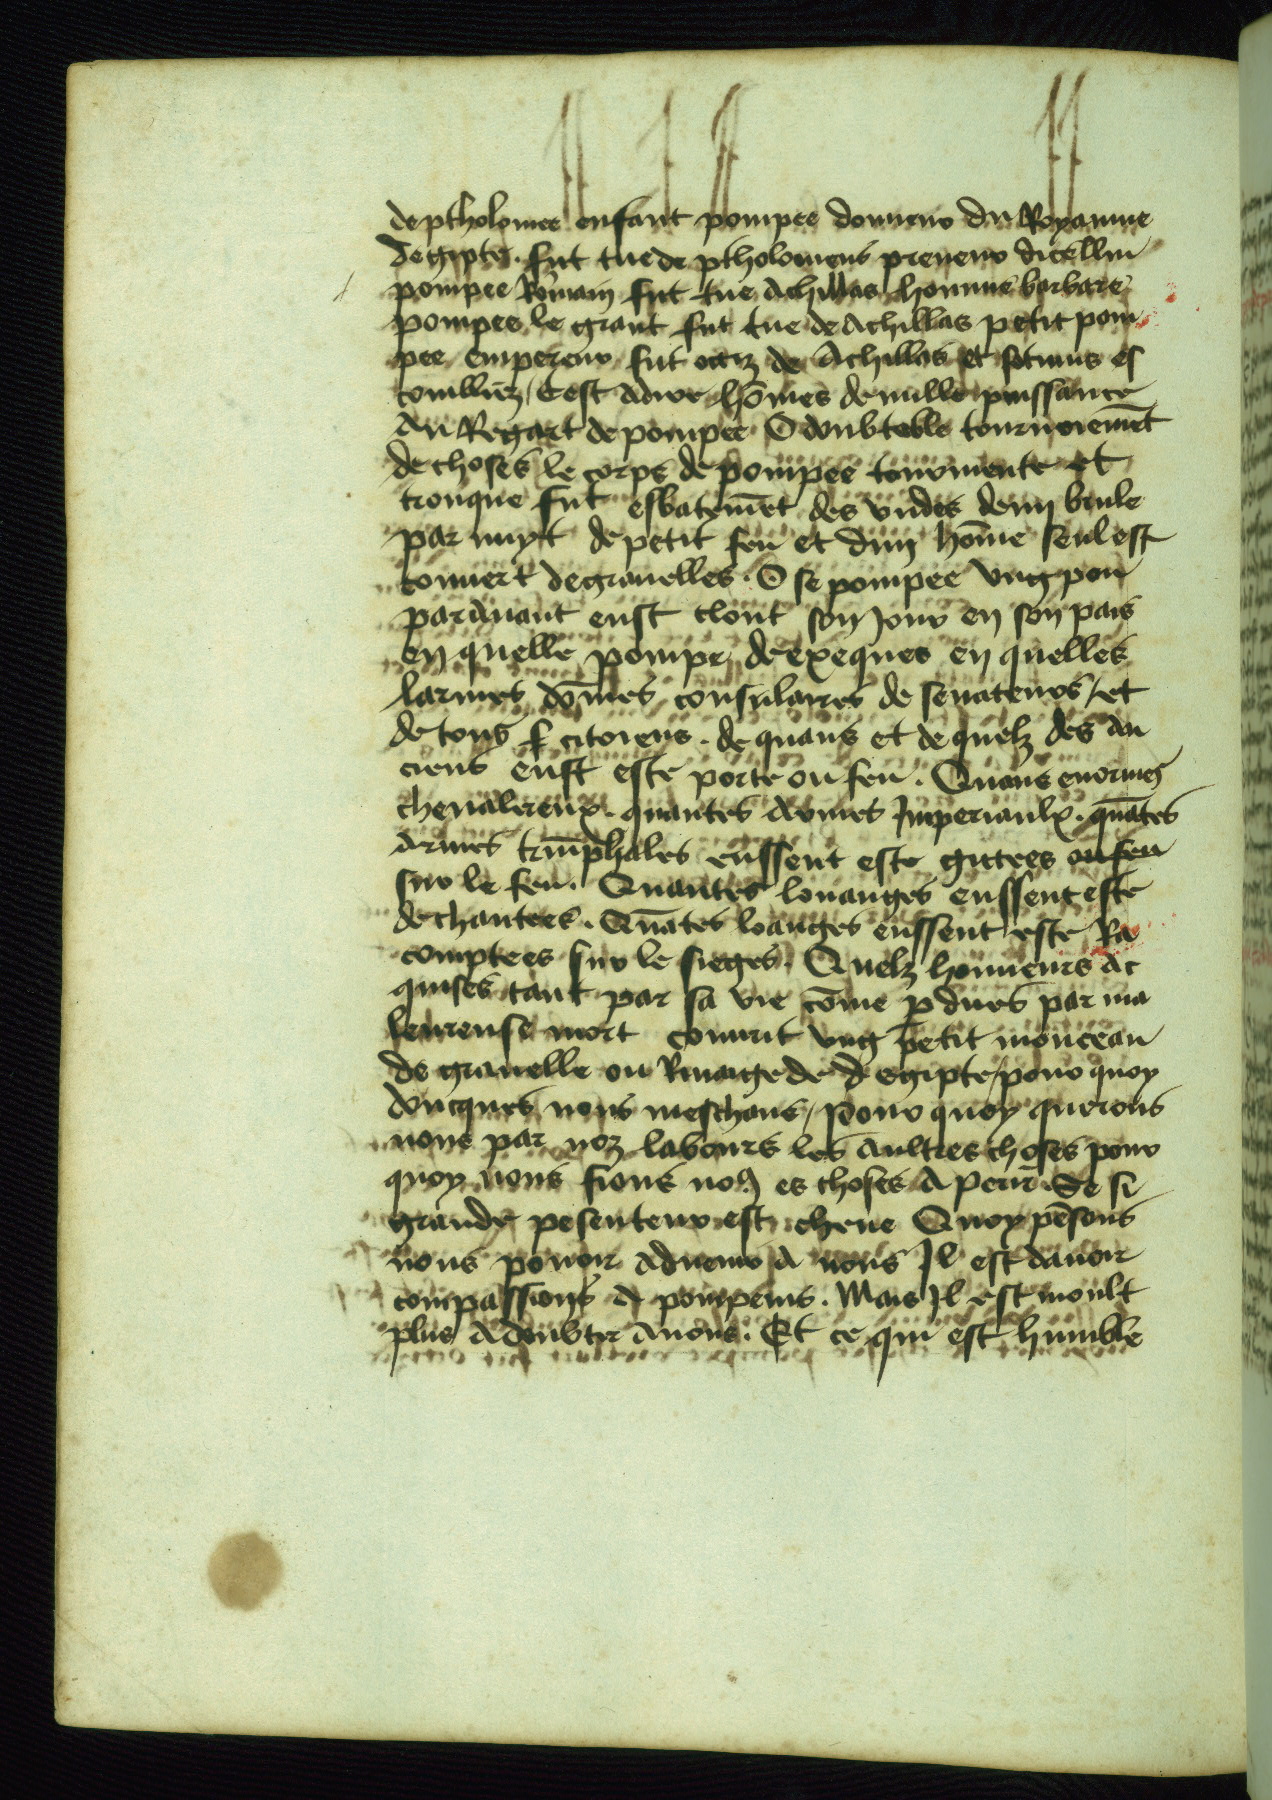 de ptholomee enfant pompee donneur du Royaume
degipte. fut tue de ptholomeus preneur dicellui
pompee Romain fut tue Achillas homme barbare
pompee le grant fut tue de Achillas petit pom
pee empereur fut occiz de Achillas et setimus es
coulliez / Cest adire hōmes de nulle puissance
Au Regart de pompee O doubtable tournoiemēt
de choses le corps de pompee tourmente et
tronque fut esbatemēt des undes demy brule
par nuyt de petit feu et dun hōme seul est
couuert de grauelles. O se pompee ung pou
parauant eust clout son Jour en son pais
en quelle pompe de exeques en quelles
larmes dōmes consulaires de senateurs / et
de tous citoiens. de quans et de quelz des an
ciens eust este porte ou feu. Quans enormes
cheualereux. quantes armes Imperiaulx. quātes
armes triūphales eussent este gittees ou feu
sur le feu. Quantes louanges eussent este
dechantees. Quātes loanges eussent este Ra
comptees sur le sieges. Quelz honneurs ac
quises tant par sa vie cōme pdues par ma
leureuse mort couurit ung petit monceau
de grauelle ou Riuaige de degipte / pour quoy
doncques nous meschans / Pour quoy querons
nous par noz labours les aultres choses pour
quoy nous fions nous es choses A perir. Se si
grande pesenteur est cheue Quoy pēsons
nous pouoir aduenir A nous Il est dauoir
compassions A pompeius. Mais Il est moult
plus Adoubter Anous. Et ce qui est humble